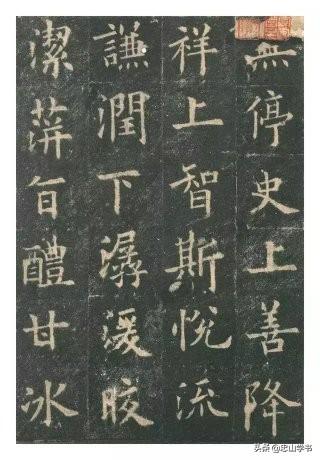 無停史上善降
祥上智斯悅流
謙潤下潺湲晈
潔蓱旨醴甘冰
头条@忠山学书